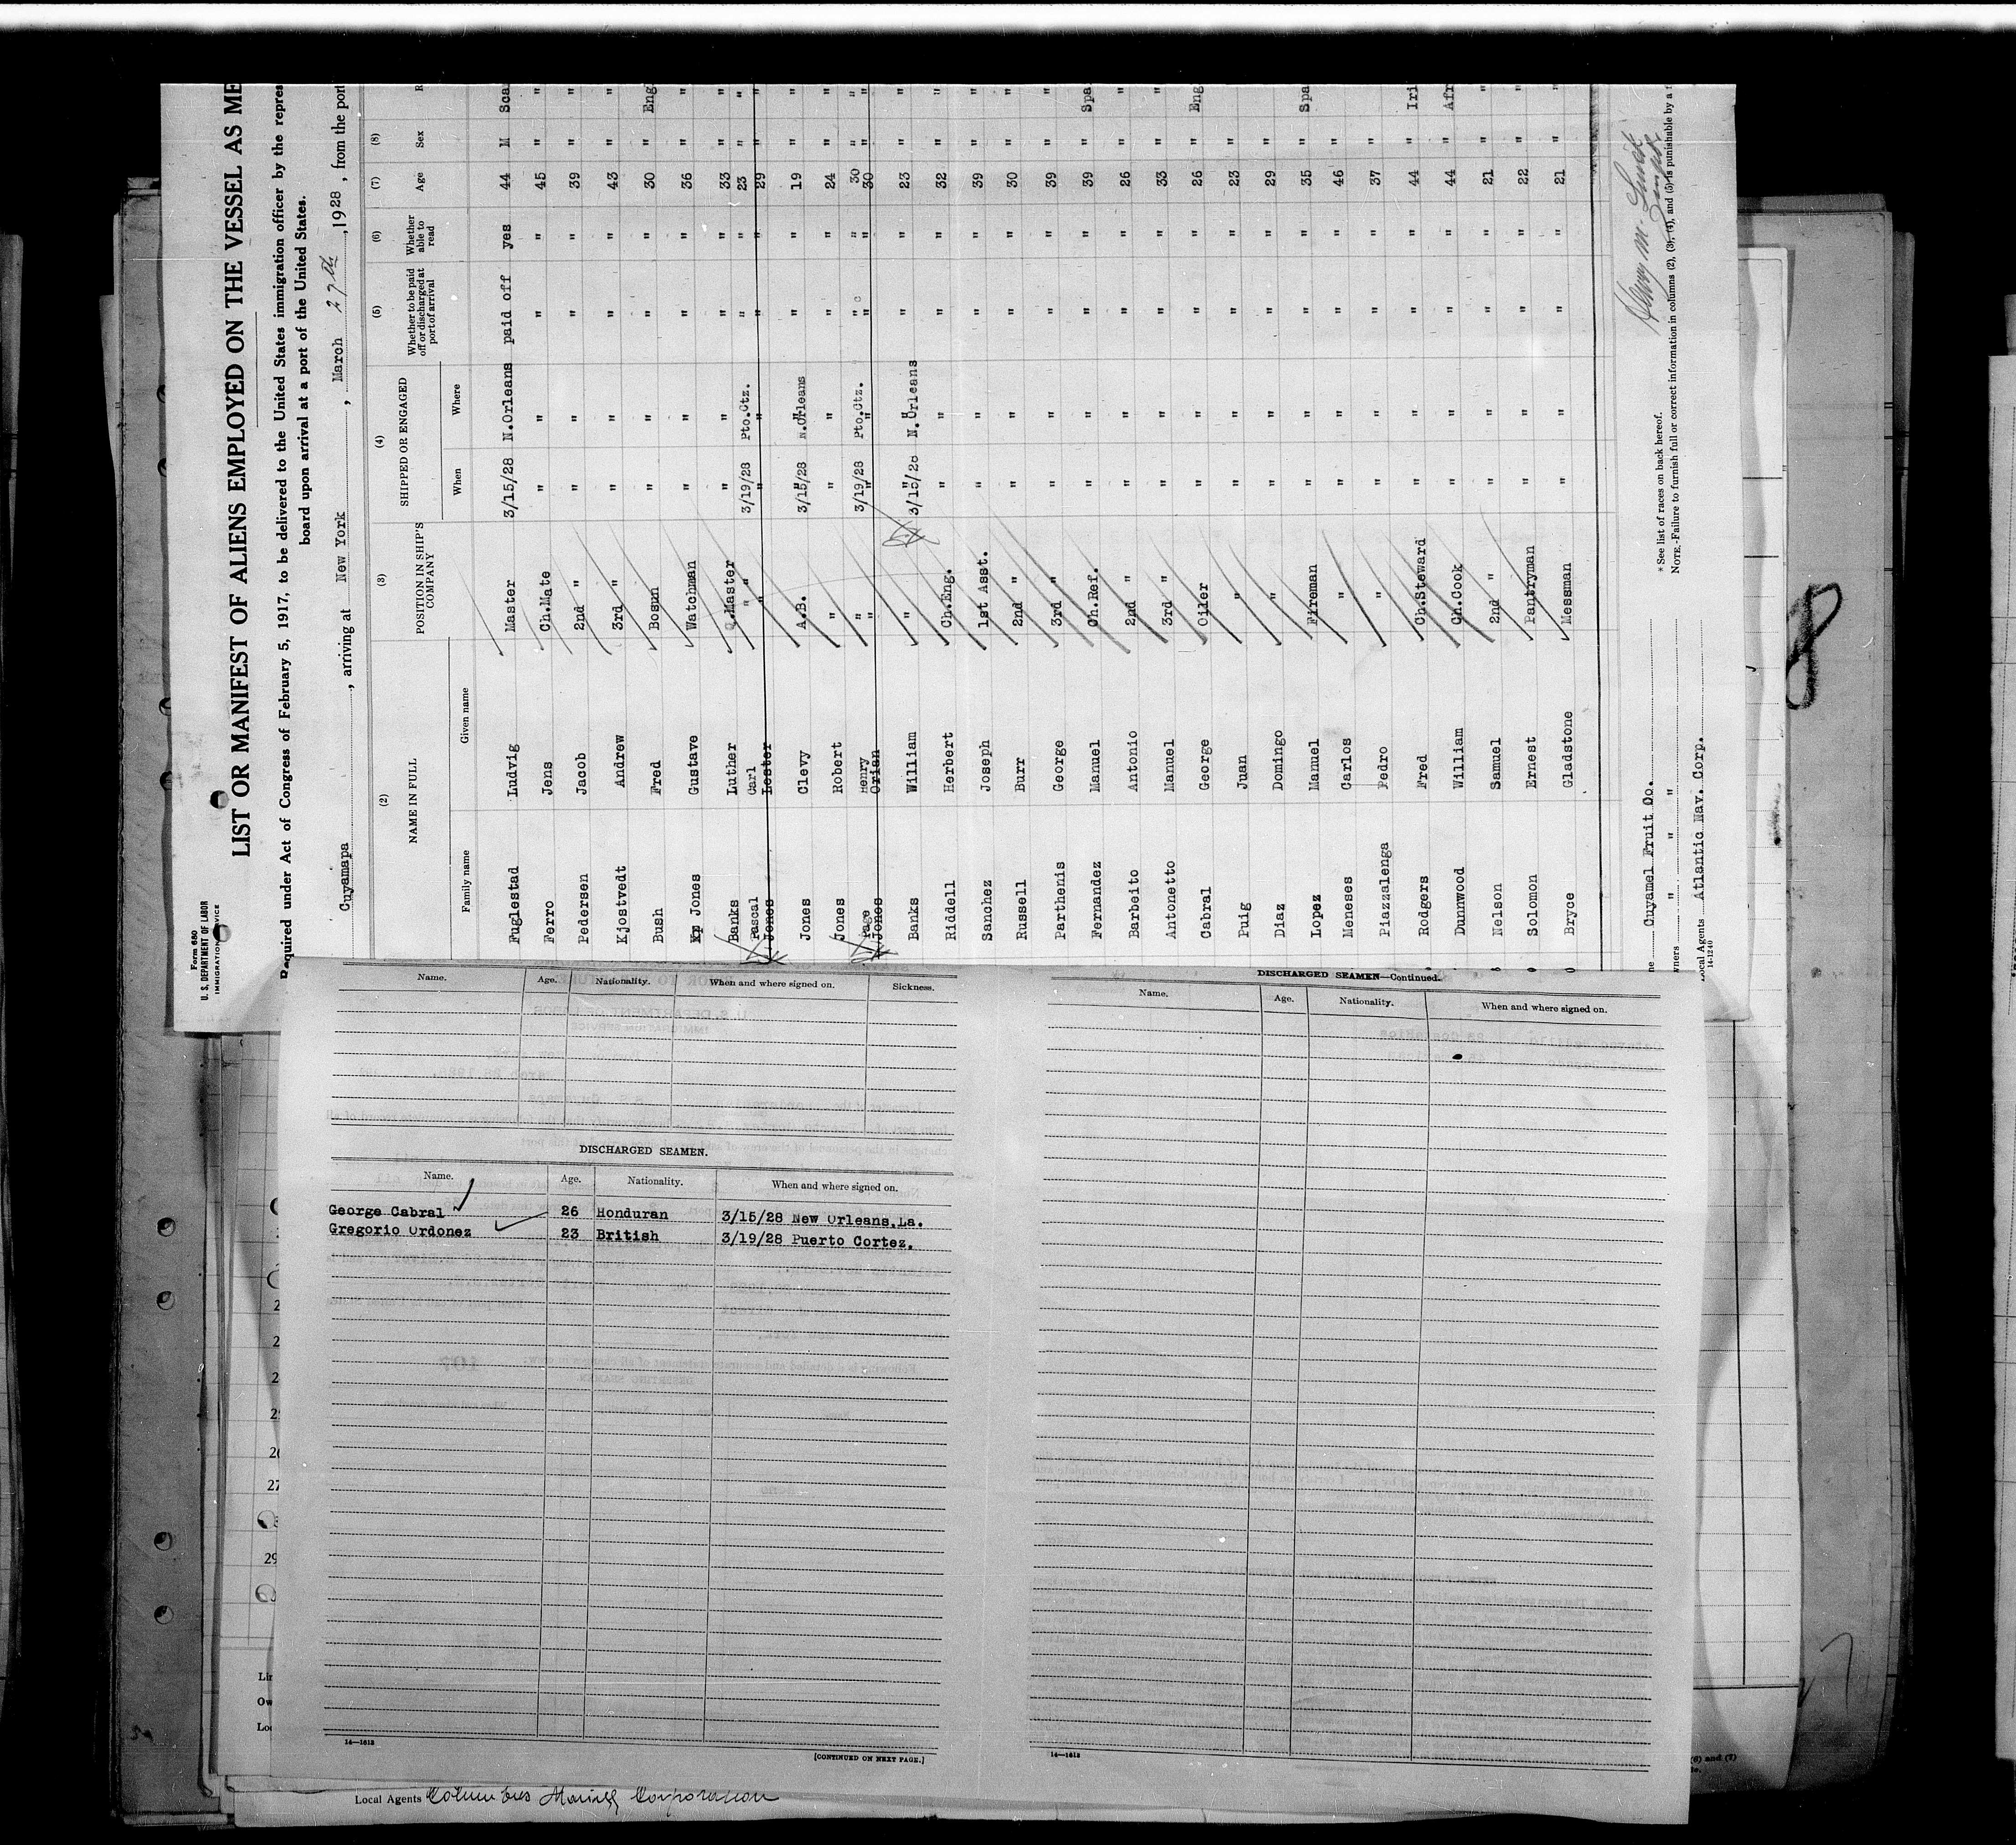 Form 680
U. S. DEPARTMENT OF LABOR
IMMIGRATION SERVICE
LIST OR MANIFEST OF ALIENS EMPLOYED ON THE VESSEL AS ME
Required under Act of Congress of February 5, 1917, to be delivered to the United States immigration officer by the repres
board upon arrival at a port of the United States.
Cuyamapa, arriving at New York, March 27th, 1928, from the port
(2) (3) (4) (5) (6) (7) (8)
NAME IN FULL POSITION IN SHIP'S COMPANY SHIPPED OR ENGAGED Whether to be paid off or discharged at port of arrival Whether able to read Age Sex R
Family name Given name When Where
Fuglestad Ludvig Master 3/15/28 N.Orleans paid off yes 44 M Sca
Ferro Jens Ch.Mate " " " " 45 " "
Pedersen Jacob 2nd " " " " " 39 " "
Kjostvedt Andrew 3rd " " " " " 43 " "
Bush Fred Bosun " " " " 30 " Eng
Jones Gustave Watchman " " " " 36 " "
Banks Luther Q.Master " " " " 33 " "
Pascal Carl " " 3/19/28 Pto.Ctz. " " 23 " "
Jones Lester " " " " " 29 " "
Jones Clevy A.B. 3/15/28 N.Orleans " " 19 " "
Jones Robert " " " " " 24 " "
Page Henry " 3/19/28 Pto.Ctz. " " 30 " "
Jones Orian " " " " " 30 " "
Banks William " 3/15/28 N.Orleans " " 23 " "
Riddell Herbert Ch.Eng. " " " " 32 " "
Sanchez Joseph 1st Asst. " " " " 39 " "
Russell Burr 2nd " " " " " 30 " "
Parthenis George 3rd " " " " " 39 " "
Fernandez Manuel Ch.Ref. " " " " 39 " Spa
Barbeito Antonio 2nd " " " " " 26 " "
Antonetto Manuel 3rd " " " " " 33 " "
Cabral George Oiler " " " " 26 " Eng
Puig Juan " " " " " 23 "
Diaz Domingo " " " " " 29 "
Lopez Manuel Fireman " " " " 35 " Spa
Meneses Carlos " " " " " 46 "
Piazzalenga Pedro " " " " " 37 "
Rodgers Fred Ch.Steward " " " " 44 " Iri
Dunnwood William Ch.Cook " " " " 44 " Afr
Nelson Samuel 2nd " " " " " 21 " "
Solomon Ernest Pantryman " " " " 22 " "
Bryce Gladstone Messman " " " " 21 " "
ne Cuyamel Fruit Co.
wners " " "
Local Agents Atlantic Nav. Corp.
14-1240
* See list of races on back hereof.
NOTE.-Failure to furnish full or correct information in columns (2), (3), (4), and (5) is punishable by a f
8
Name. Age. Nationality. When and where signed on. Sickness.
DISCHARGED SEAMEN.
Name. Age. Nationality. When and where signed on.
George Cabral 26 Honduran 3/15/28 New Orleans,La.
Gregorio Ordonez 23 British 3/19/28 Puerto Cortez.
14—1613
[CONTINUED ON NEXT PAGE.]
DISCHARGED SEAMEN—Continued.
Name. Age. Nationality. When and where signed on.
14—1613
27
29
Lin
Ow
Loc
(6) and (7)
Local Agents Columbus Marine Corporation